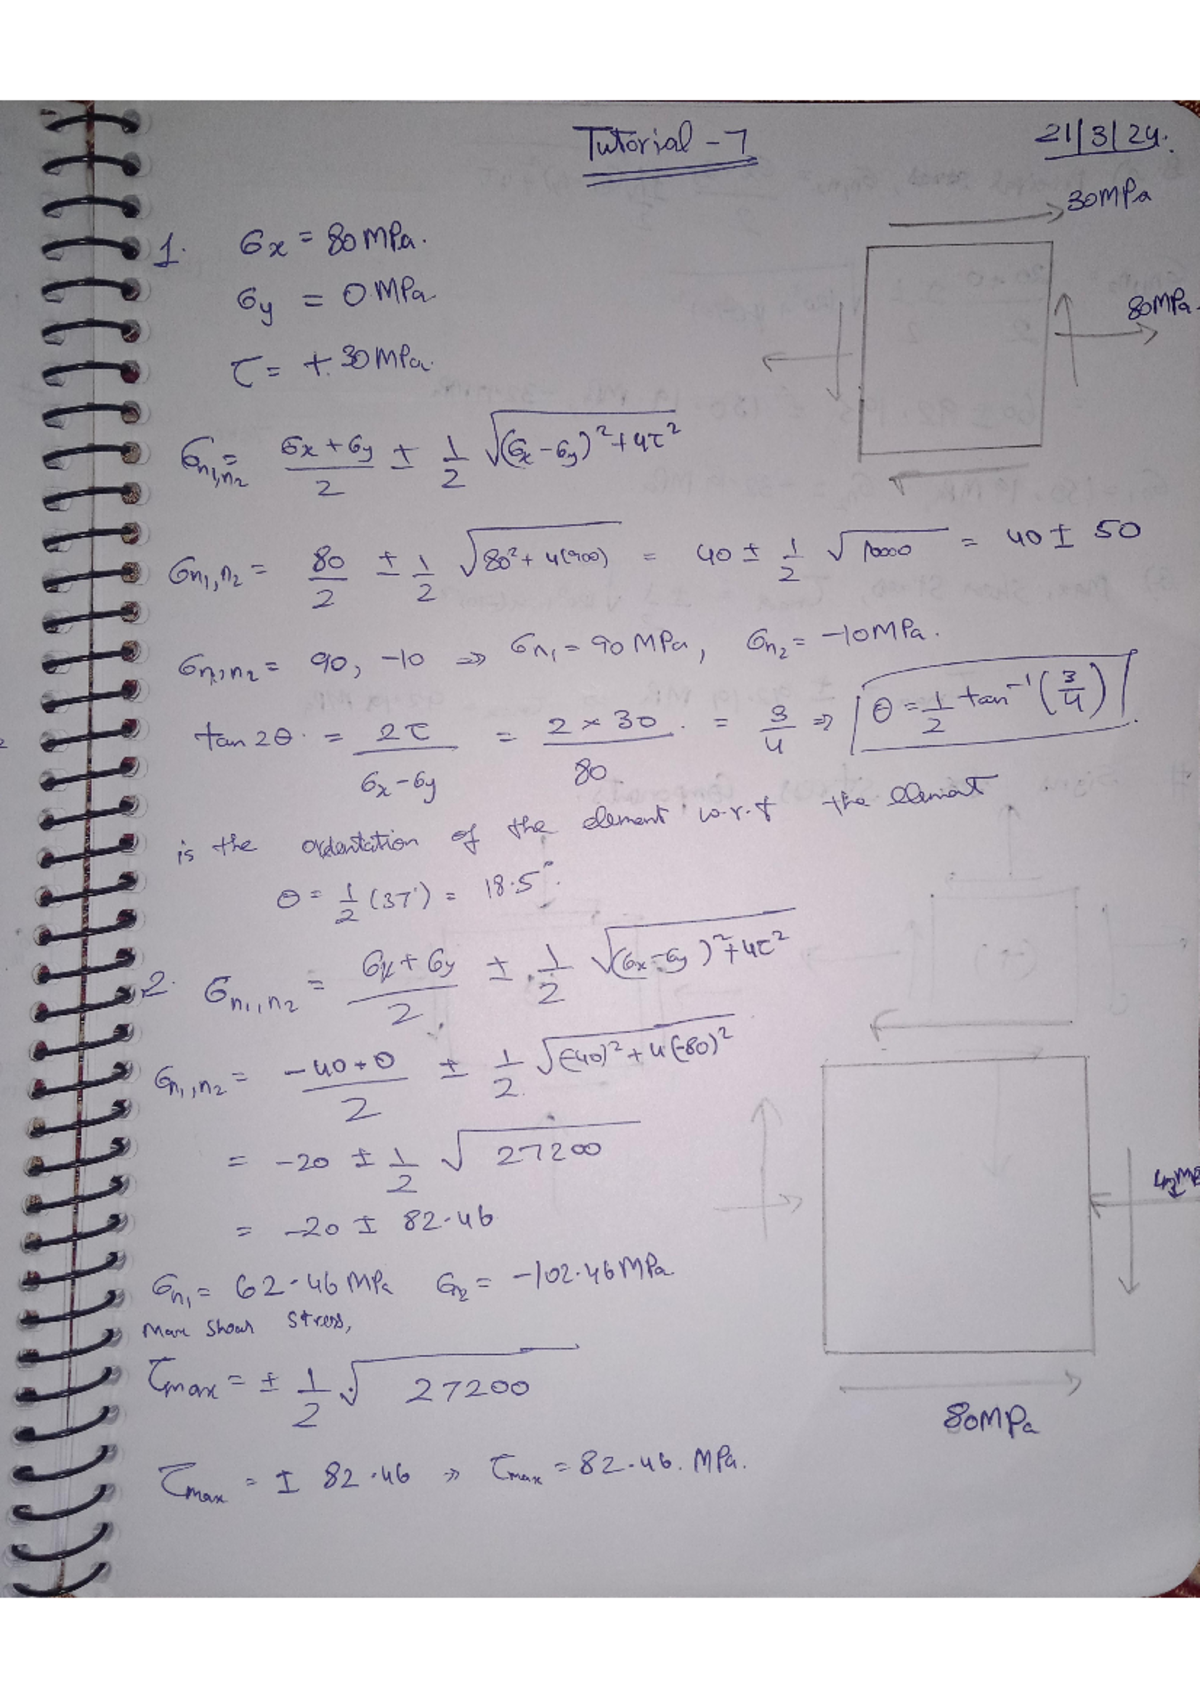 Tutorial - 7
21/3/24.
30MPa
1. σx = 80MPa.
σy = 0MPa
80MPa.
τ = +30MPa.
σn1,n2 = (σx + σy)/2 ± 1/2 √((σx - σy)² + 4τ²)
σn1,n2 = 80/2 ± 1/2 √(80² + 4(900)) = 40 ± 1/2 √10000 = 40 ± 50
σn1,n2 = 90, -10 ⇒ σn1 = 90 MPa, σn2 = -10MPa.
tan 2θ = 2τ/(σx - σy) = (2 × 30)/80 = 3/4 ⇒ θ = 1/2 tan⁻¹(3/4)
is the of the element w.r.t the element
θ = 1/2 (37°) = 18.5°.
2. σn1,n2 = (σx + σy)/2 ± 1/2 √((σx - σy)² + 4τ²)
σn1,n2 = (-40+0)/2 ± 1/2 √((-40)² + 4(-80)²)
= -20 ± 1/2 √27200
= -20 ± 82.46
σn1 = 62.46 MPa σn2 = -102.46MPa
Max Shear Stress,
τmax = ± 1/2 √27200
80MPa
τmax = ± 82.46 ⇒ τmax = 82.46. MPa.